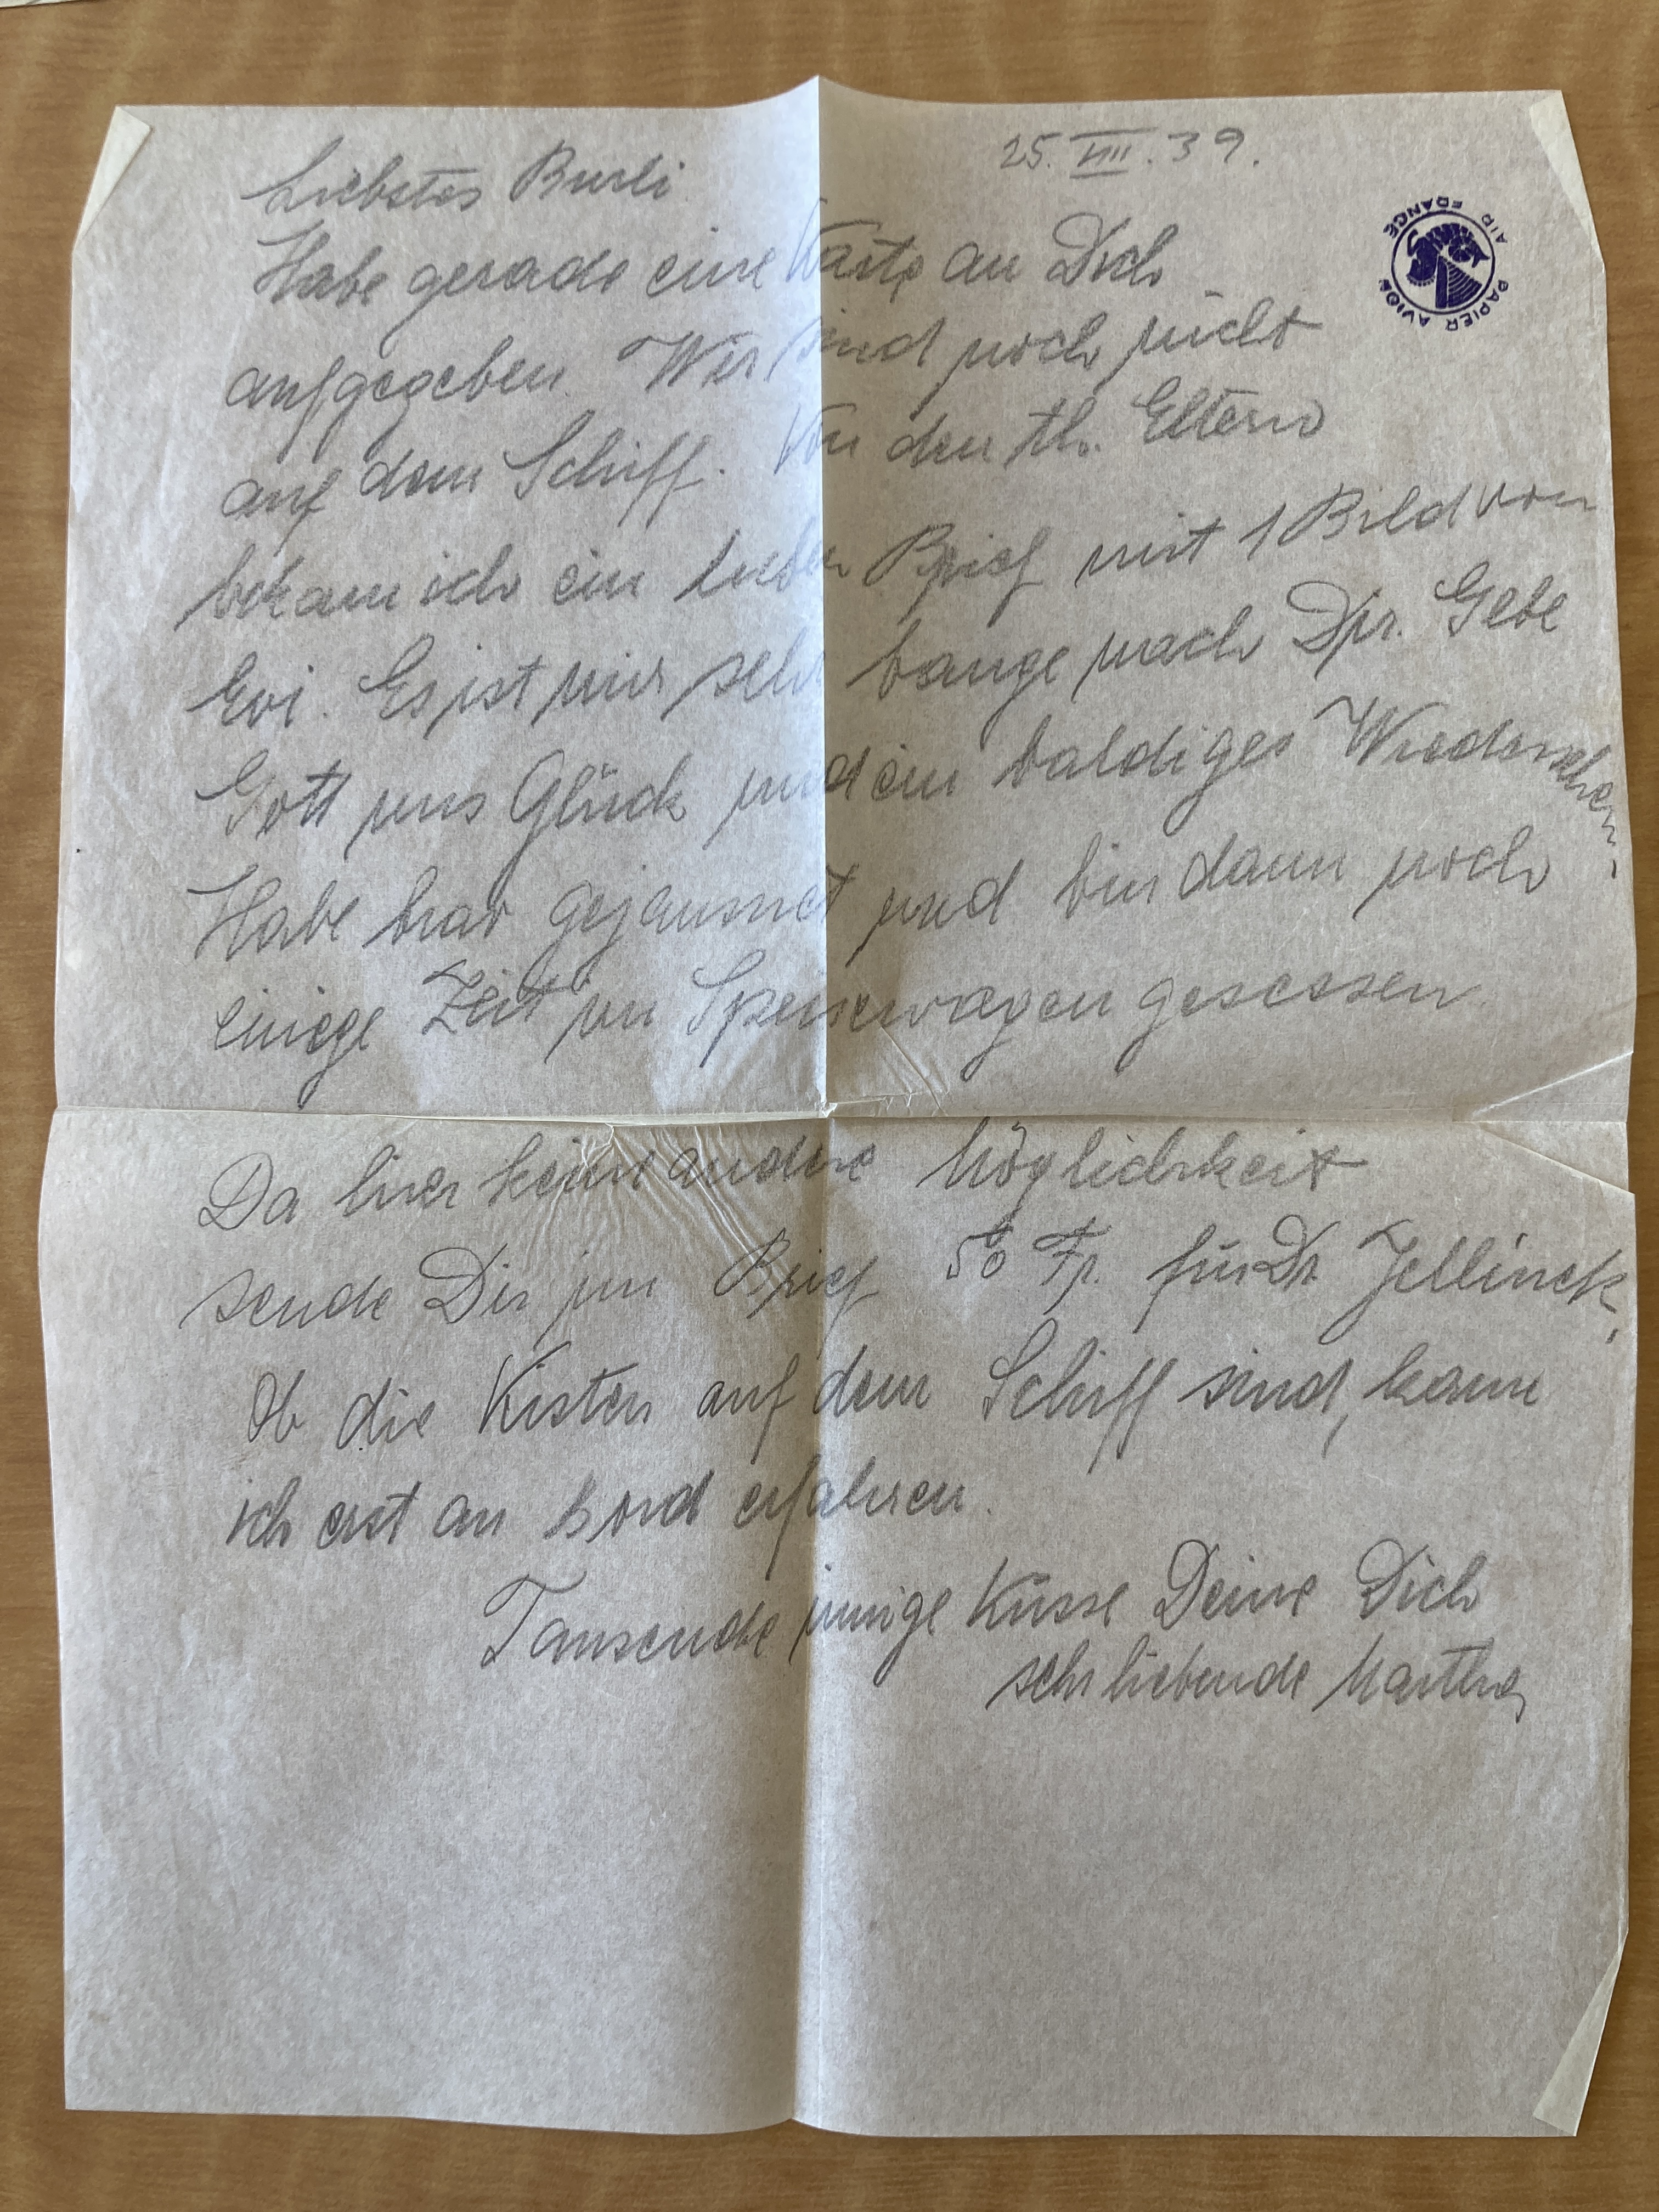 25. VIII. 39.
Liebstes Burli
AIR FRANCE
PAPIER AVION
Habe gerade eine Karte an Dich
aufgegeben. Wir sind noch nicht
auf dem Schiff. Von den th. Eltern
bekam ich ein lieben Brief mit 1 Bild von
Evi. Es ist mir sehr bange nach Dir. Gebe
Gott uns Glück und ein baldiges Wiedersehen.
Habe brav gejausnet und bin dann noch
einige Zeit im Speisewagen gesessen
Da hier keine andere Möglichkeit
sende Dir im Brief 50 Fr. für Dr. Jellinek.
Ob die Kisten auf dem Schiff sind, kann
ich erst an Bord erfahren.
Tausende innige Küsse Deine Dich
sehr liebende Martha